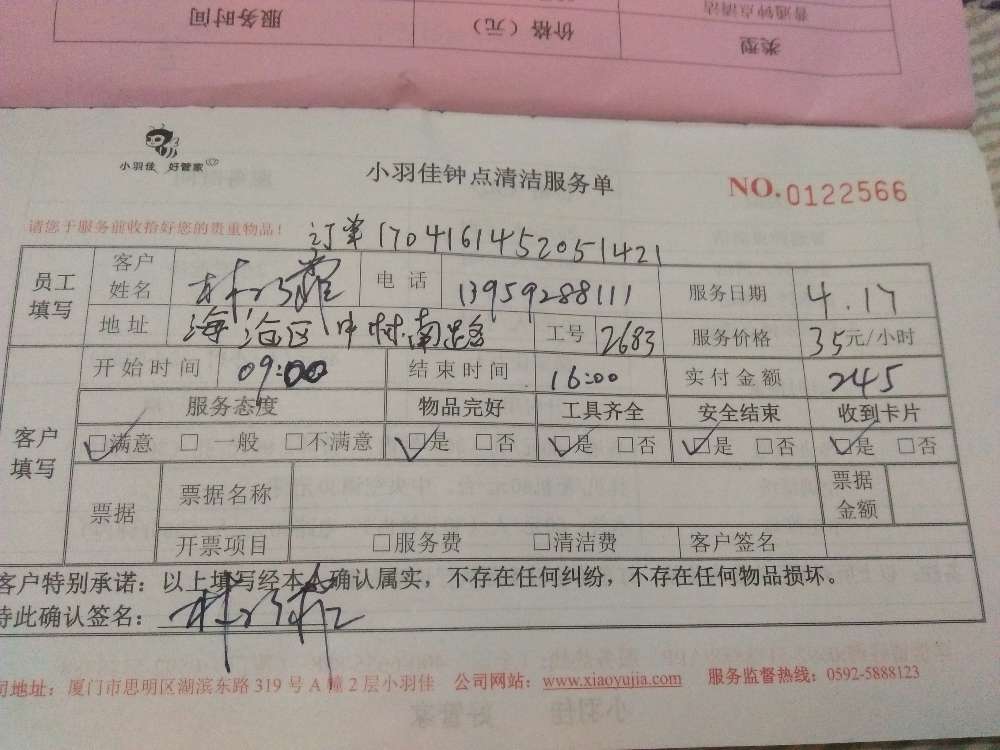 服务时间 价格（元） 类型
普通钟点清洁
小羽佳 好管家
小羽佳钟点清洁服务单
NO.0122566
请您于服务前收拾好您的贵重物品！
订单1704161452051421
员工填写 客户姓名 电话 13959288111 服务日期 4.17
地址 海沧区中林南路 工号 2683 服务价格 35元/小时
客户填写 开始时间 09:00 结束时间 16:00 实付金额 245
服务态度 物品完好 工具齐全 安全结束 收到卡片
满意 一般 不满意 是 否 是 否 是 否 是 否
票据 票据名称 票据金额
开票项目 服务费 清洁费 客户签名
客户特别承诺：以上填写经本人确认属实，不存在任何纠纷，不存在任何物品损坏。
特此确认签名：
司地址：厦门市思明区湖滨东路319号A幢2层小羽佳 公司网站：www.xiaoyujia.com 服务监督热线：0592-5888123